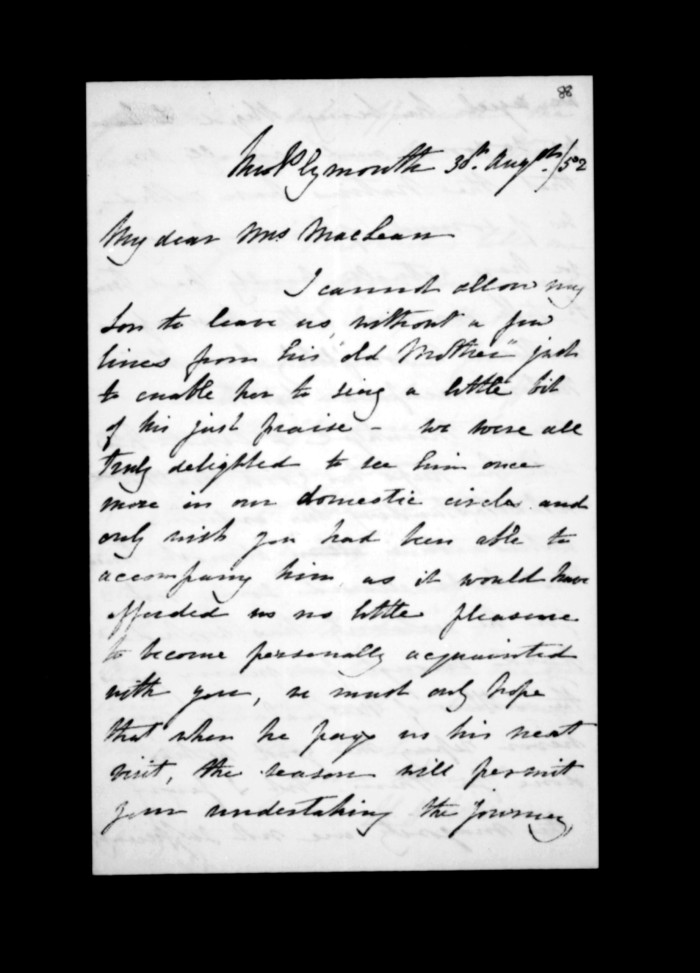 88
New Plymouth 30th Augst/52
My dear Mrs MacLean
I cannot allow my
Son to leave us, without a few
lines from his "old Mother" just
to enable her to sing a little bit
of his just praise - we were all
truly delighted to see him once
more in our domestic circle and
only wish you had been able to
accompany him, as it would have
afforded us no little pleasure
to become personally acquainted
with you, we must only hope
that when he pays us his next
visit, the season will permit
your undertaking the journey,